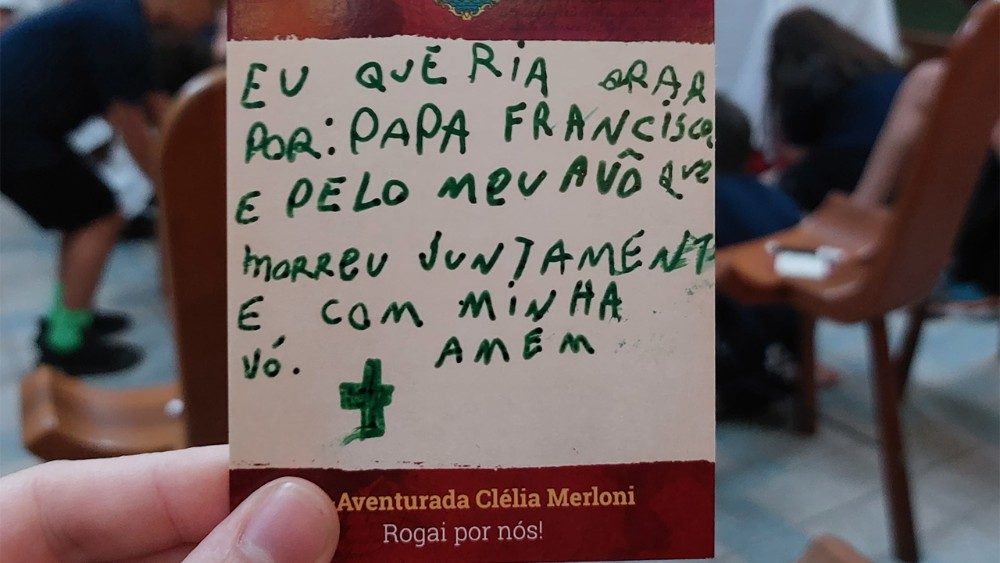 EU QUERIA ORAR
POR: PAPA FRANCISCO
E PELO MEU AVÔ QUE
MORREU JUNTAMENTE
E COM MINHA
VÓ. AMEM
Aventurada Clélia Merloni
Rogai por nós!